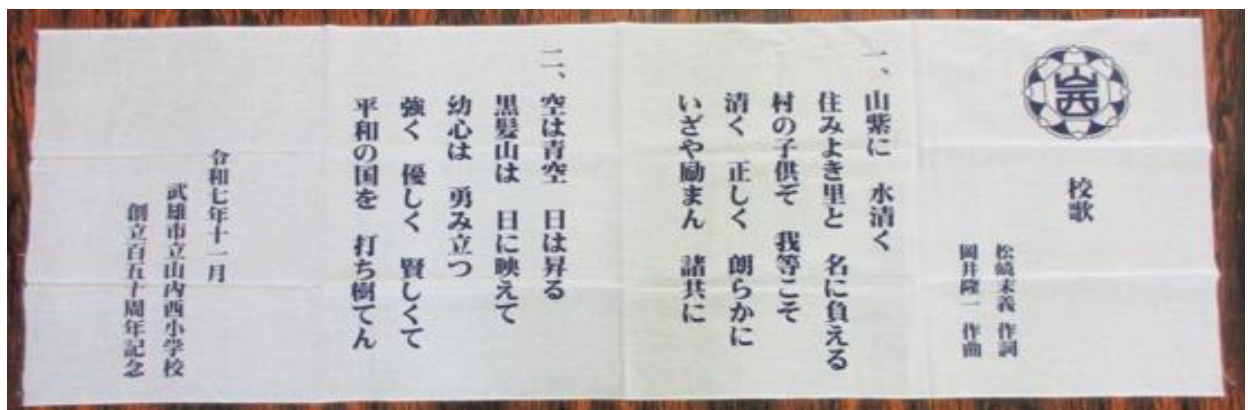 山西
校歌
松崎末義 作詞
岡井隆一 作曲
一、山紫に 水清く
住みよき里と 名に負える
村の子供ぞ 我等こそ
清く 正しく 朗らかに
いざや励まん 諸共に
二、空は青空 日は昇る
黒髪山は 日に映えて
幼心は 勇み立つ
強く 優しく 賢しくて
平和の国を 打ち樹てん
令和七年十一月
武雄市立山内西小学校
創立百五十周年記念